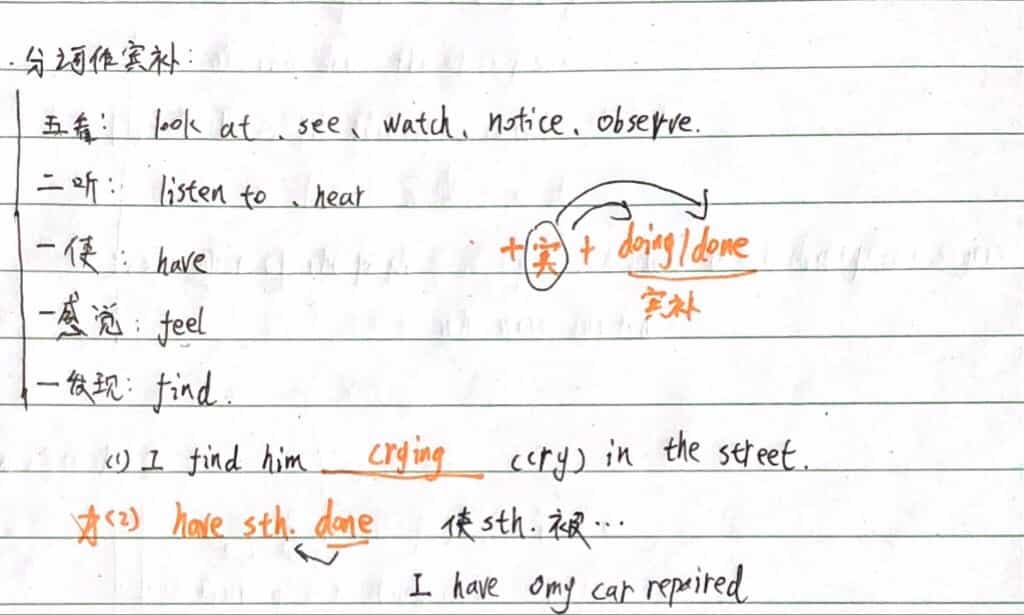 分词作宾补:
五看: look at、see、watch、notice、observe.
二听: listen to、hear
一使: have
+宾+ doing/done
宾补
一感觉: feel
一发现: find.
(1) I find him crying (cry) in the street.
(2) have sth. done 使sth.被…
I have my car repaired